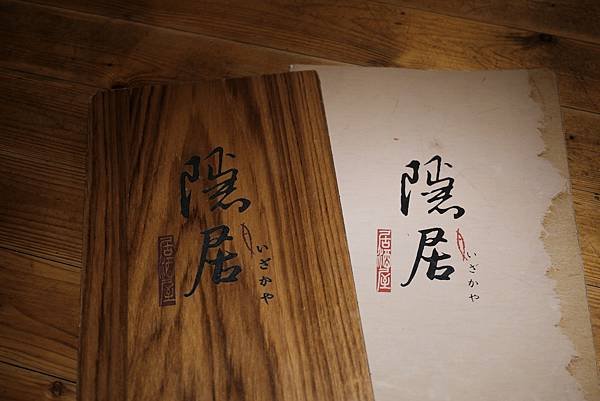 隱居
居酒屋
いざかや
隱居
居酒屋
いざかや